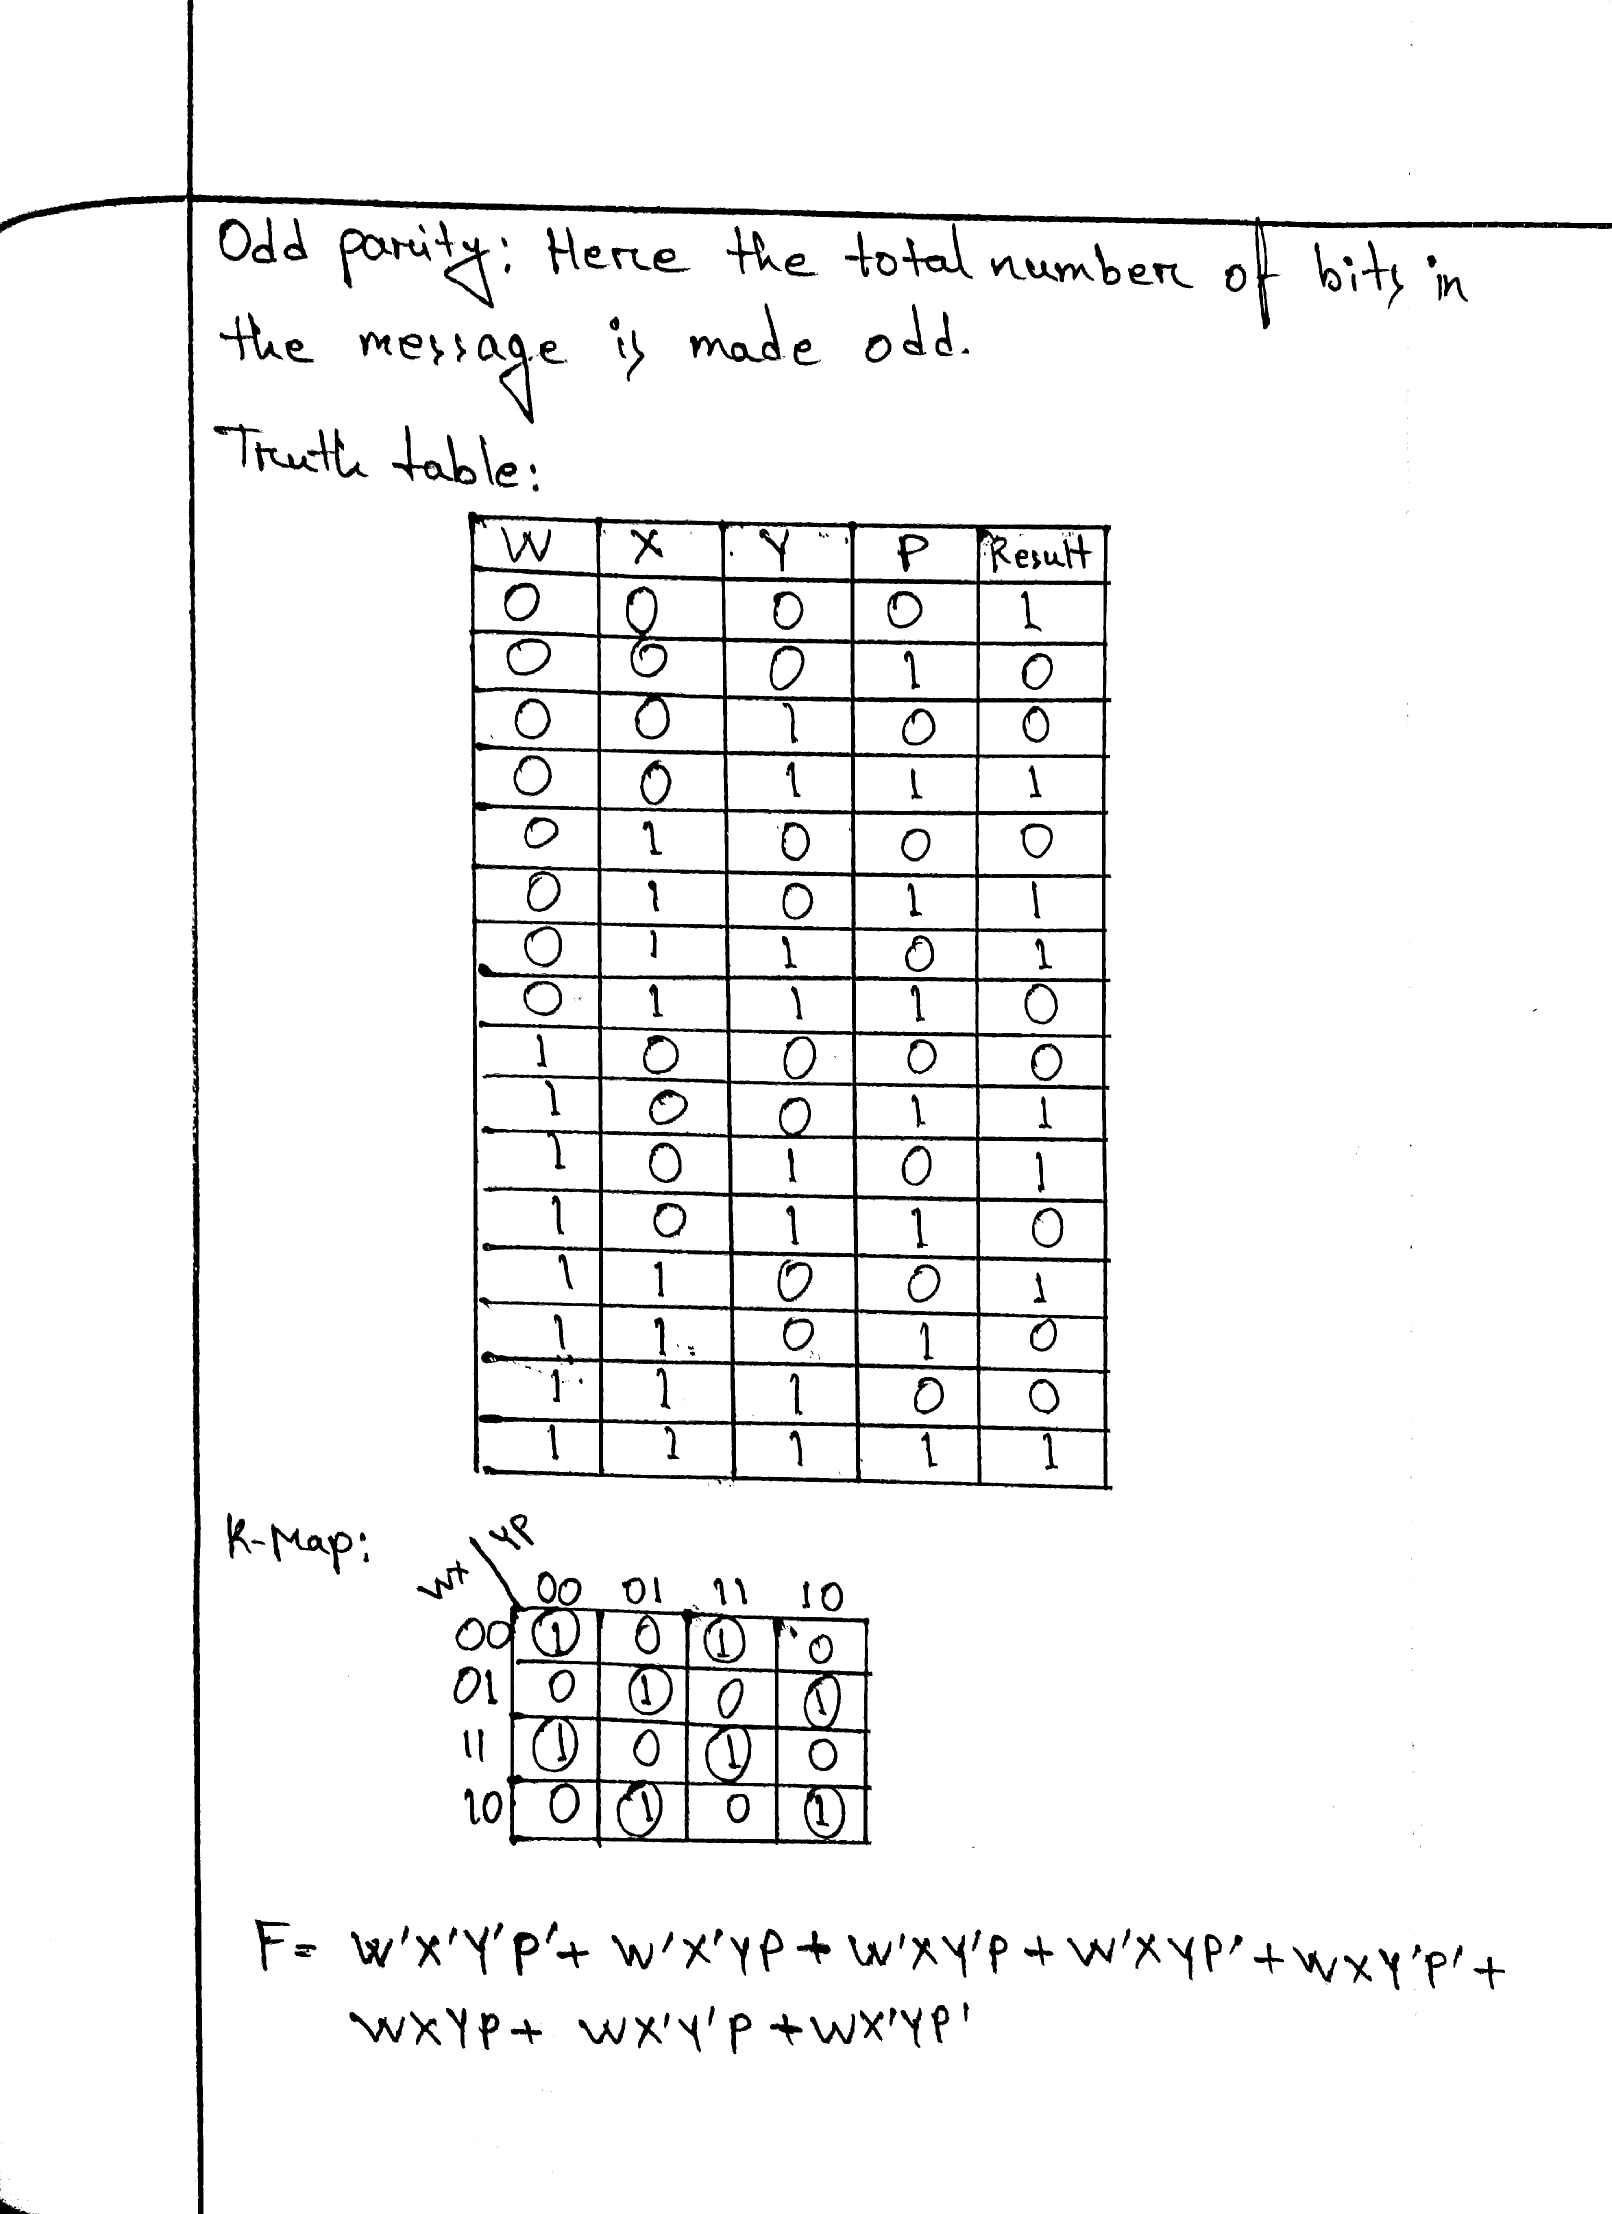 Odd parity: Here the total number of bits in
the message is made odd.
Truth table:
W X Y P Result
0 0 0 0 1
0 0 0 1 0
0 0 1 0 0
0 0 1 1 1
0 1 0 0 0
0 1 0 1 1
0 1 1 0 1
0 1 1 1 0
1 0 0 0 0
1 0 0 1 1
1 0 1 0 1
1 0 1 1 0
1 1 0 0 1
1 1 0 1 0
1 1 1 0 0
1 1 1 1 1
K-Map:
WX YP
00 01 11 10
00 1 0 1 0
01 0 1 0 1
11 1 0 1 0
10 0 1 0 1
F= W'X'Y'P'+ W'X'YP + W'XY'P + W'XYP' + WXY'P' +
WXYP + WX'Y'P + WX'YP'